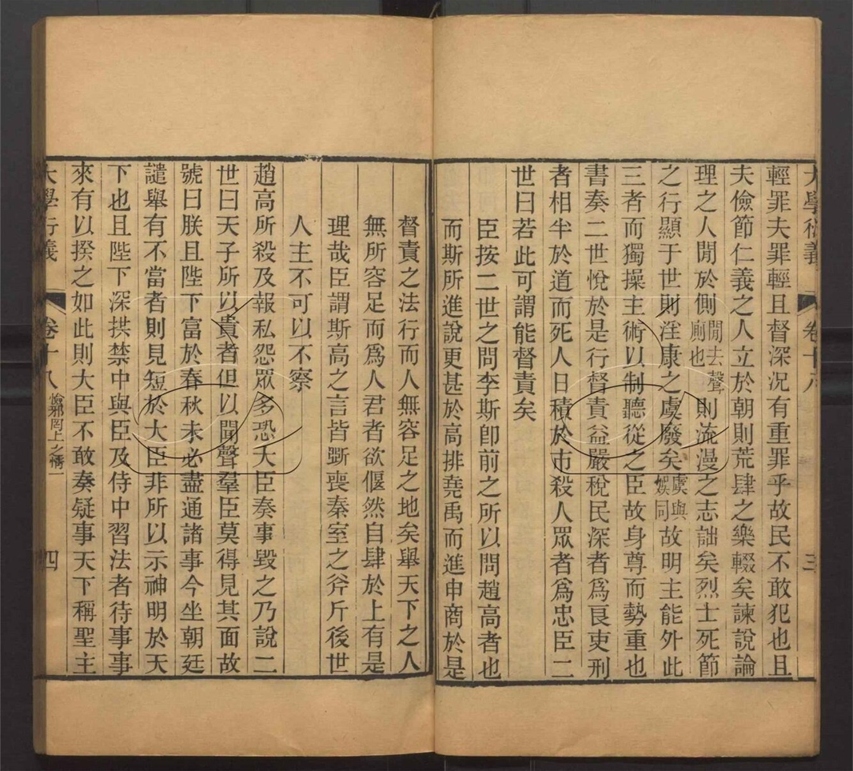 大學衍義 卷十八 三
輕罪夫罪輕且督深况有重罪乎故民不敢犯也且
夫儉節仁義之人立於朝則荒肆之樂輟矣諫說論
理之人閒於側閒去聲廁也則流漫之志詘矣烈士死節
之行顯于世則淫康之虞廢矣虞與娛同故明主能外此
三者而獨操主術以制聽從之臣故身尊而勢重也
書奏二世悅於是行督責益嚴稅民深者爲良吏刑
者相半於道而死人日積於市殺人眾者爲忠臣二
世曰若此可謂能督責矣
臣按二世之問李斯卽前之所以問趙高者也
而斯所進說更甚於高排堯禹而進申商於是
督責之法行而人無容足之地矣舉天下之人
無所容足而爲人君者欲偃然自肆於上有是
理哉臣謂斯高之言皆斵喪秦室之斧斤後世
人主不可以不察
趙高所殺及報私怨眾多恐大臣奏事毀之乃說二
世曰天子所以貴者但以聞聲羣臣莫得見其面故
號曰朕且陛下富於春秋未必盡通諸事今坐朝廷
譴舉有不當者則見短於大臣非所以示神明於天
下也且陛下深拱禁中與臣及侍中習法者待事事
來有以揆之如此則大臣不敢奏疑事天下稱聖主
大學衍義 卷十八 憸邪罔上之情一 四